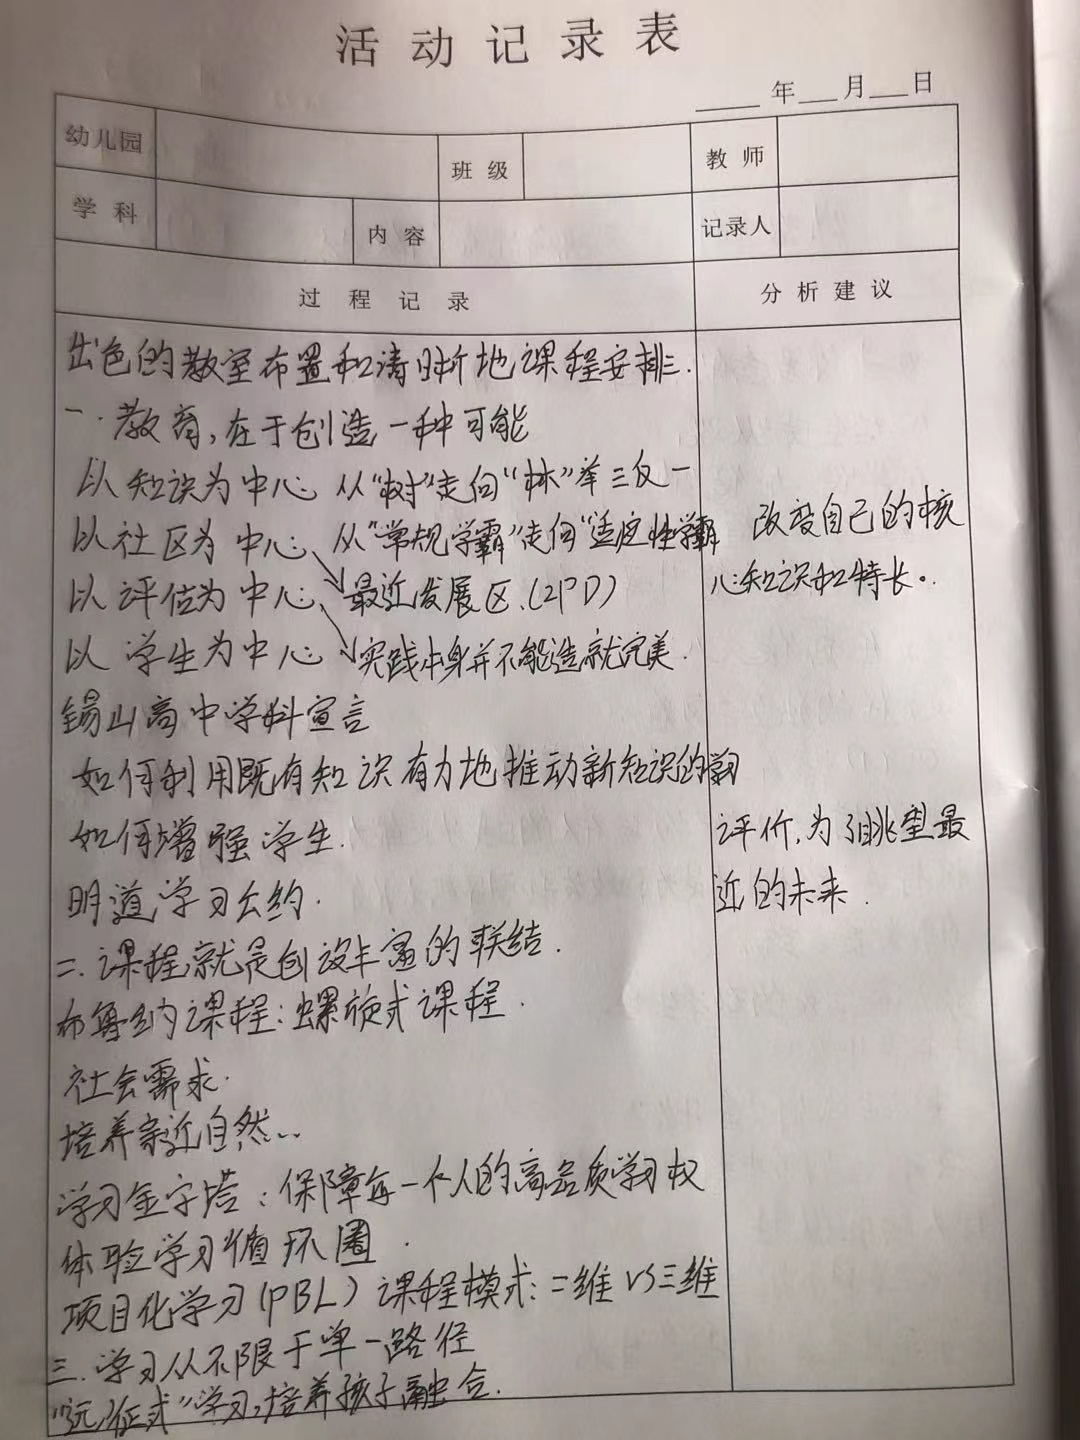 活动记录表
年 月 日
幼儿园 班级 教师
学科 内容 记录人
过程记录 分析建议
出色的教室布置和清晰地课程安排.
一.教育,在于创造一种可能
以知识为中心 从“树”走向“林”举三反一
以社区为中心 从“常规学霸”走向“适应性学霸
改变自己的核
以评估为中心 最近发展区.(ZPD)
心知识和特长.
以学生为中心 实践本身并不能造就完美.
锡山高中学科宣言
如何利用既有知识有力地推动新知识的学习
如何增强学生.
评价,为了眺望最
明道学习公约.
近的未来.
二.课程,就是创设丰富的联结.
布鲁纳课程:螺旋式课程.
社会需求.
培养亲近自然...
学习金字塔:保障每一个人的高品质学习权
体验学习循环圈.
项目化学习(PBL)课程模式:二维VS三维
三.学习从不限于单一路径
“远征式”学习,培养孩子融合.